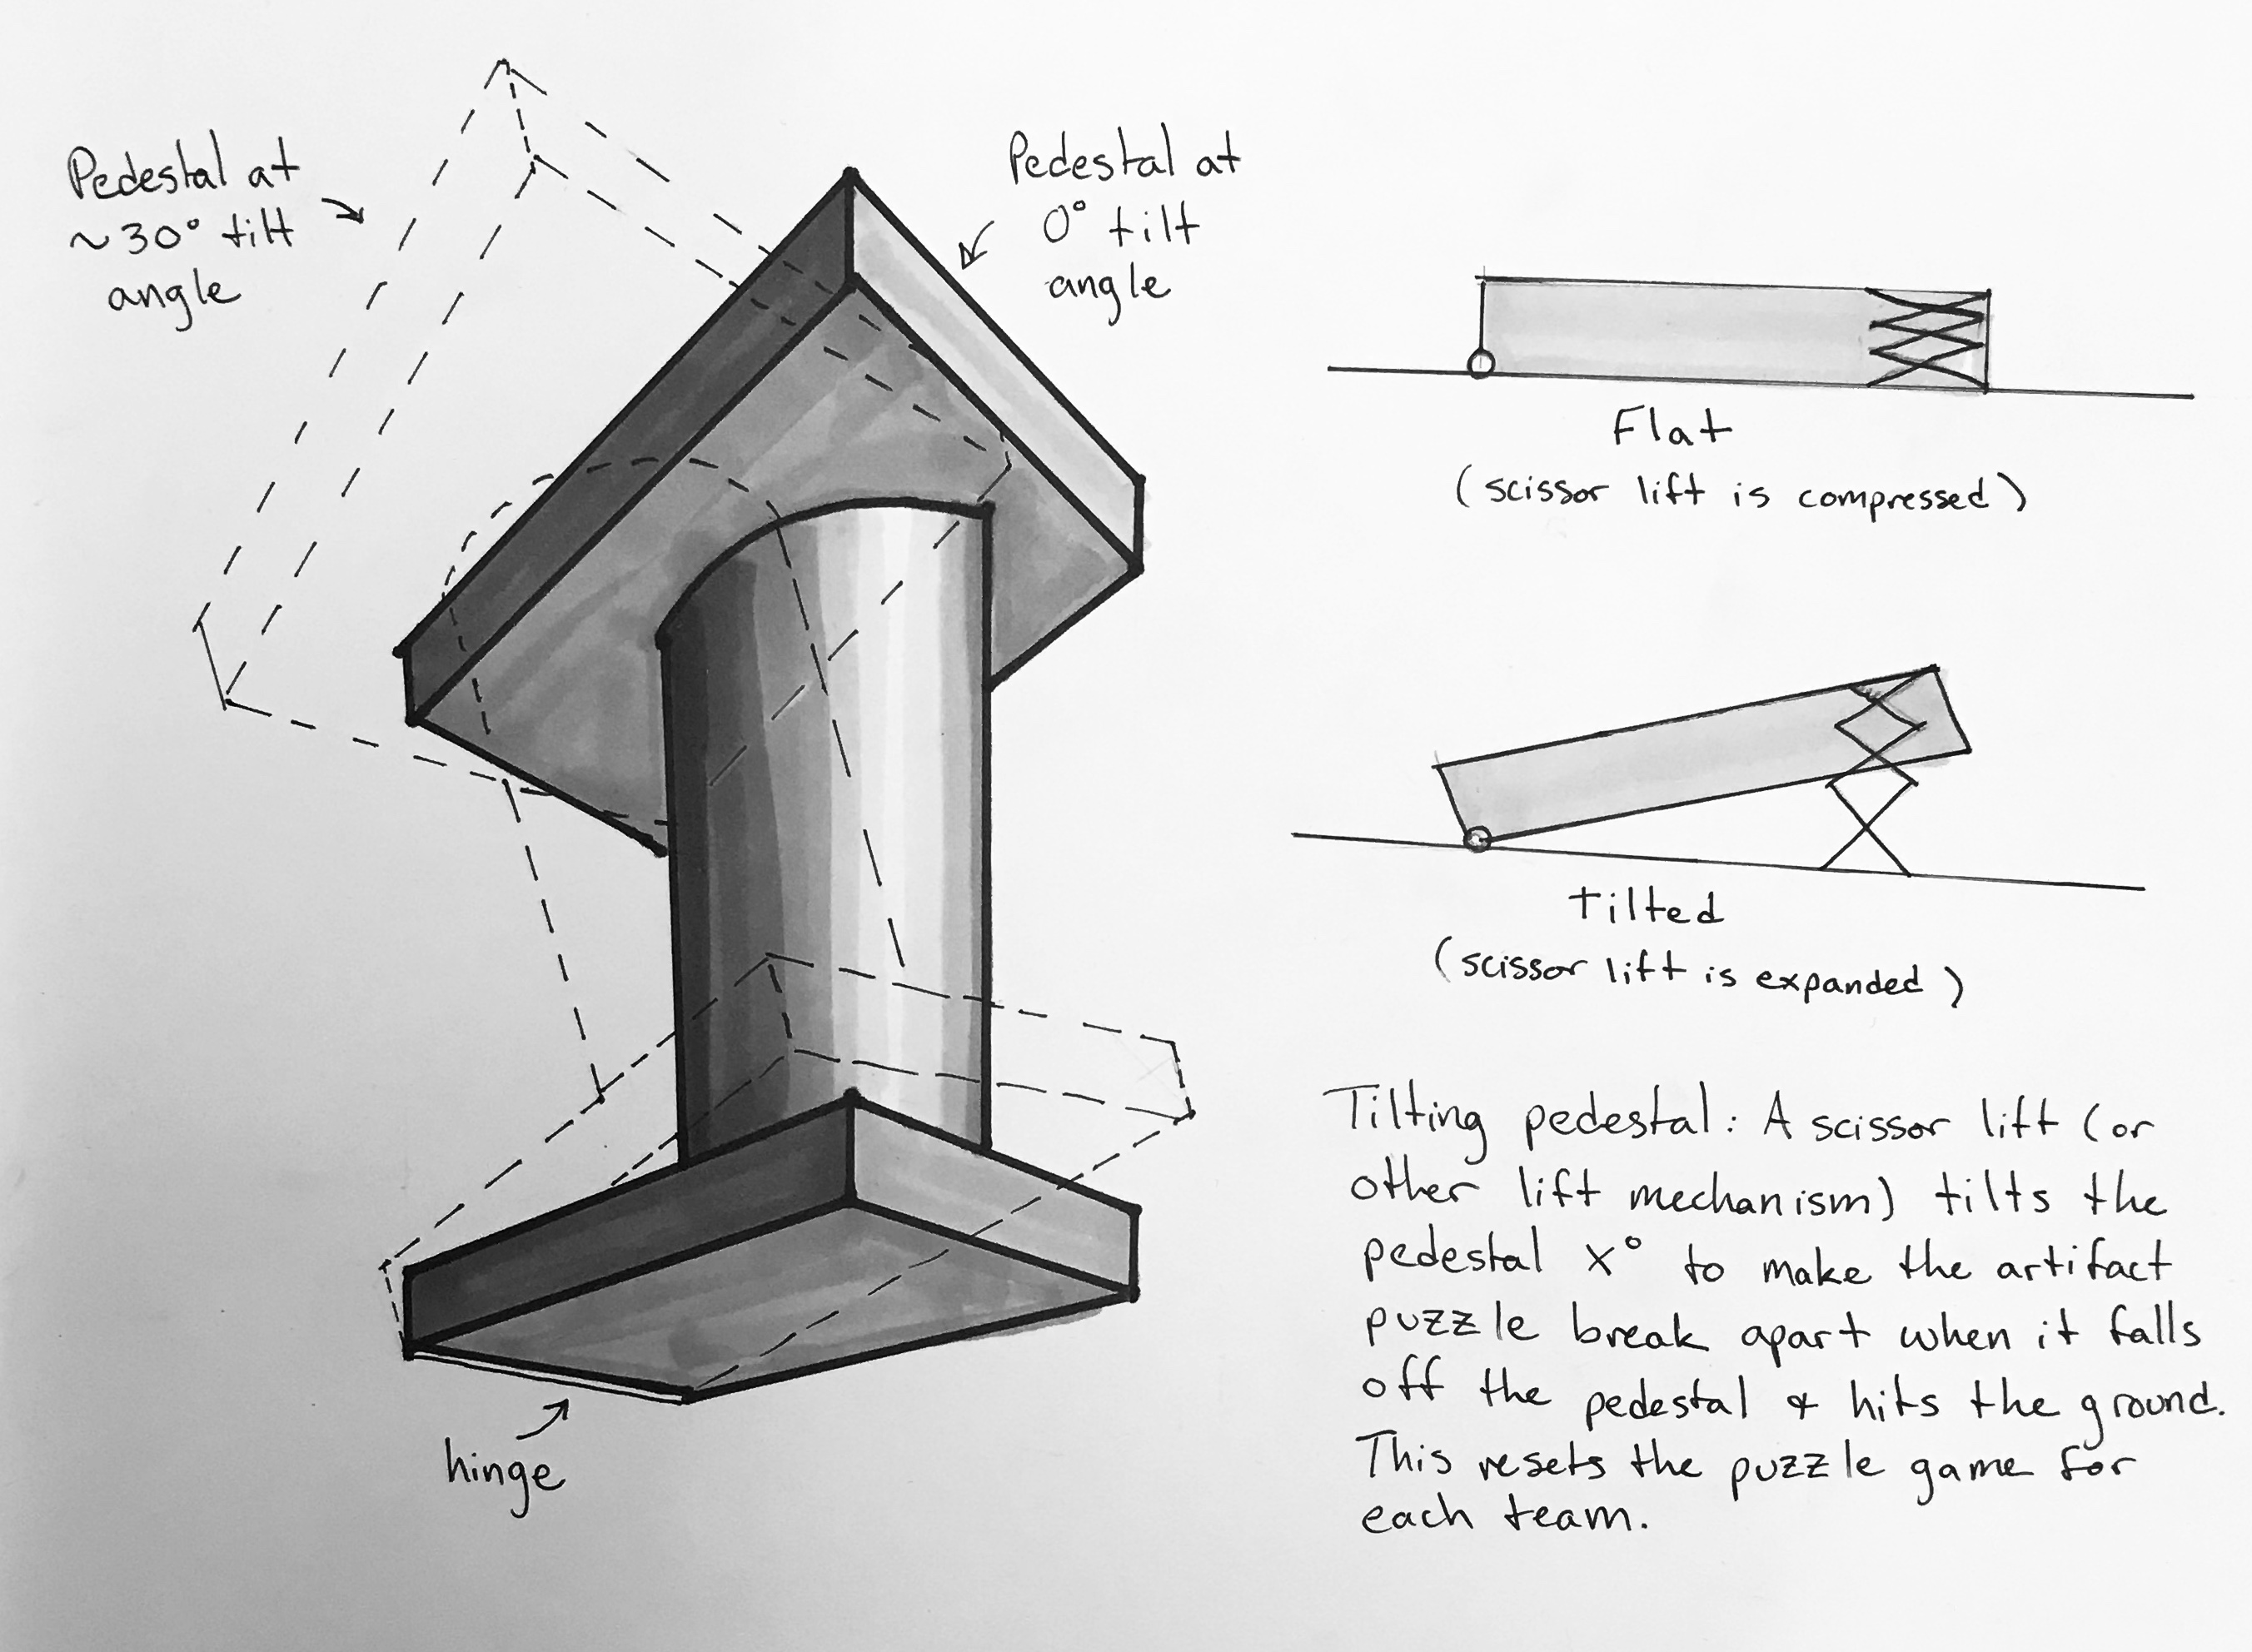 Pedestal at
~30° tilt
angle
Pedestal at
0° tilt
angle
Flat
(scissor lift is compressed)
tilted
(scissor lift is expanded)
Tilting pedestal: A scissor lift (or
other lift mechanism) tilts the
pedestal x° to make the artifact
puzzle break apart when it falls
off the pedestal & hits the ground.
This resets the puzzle game for
each team.
hinge